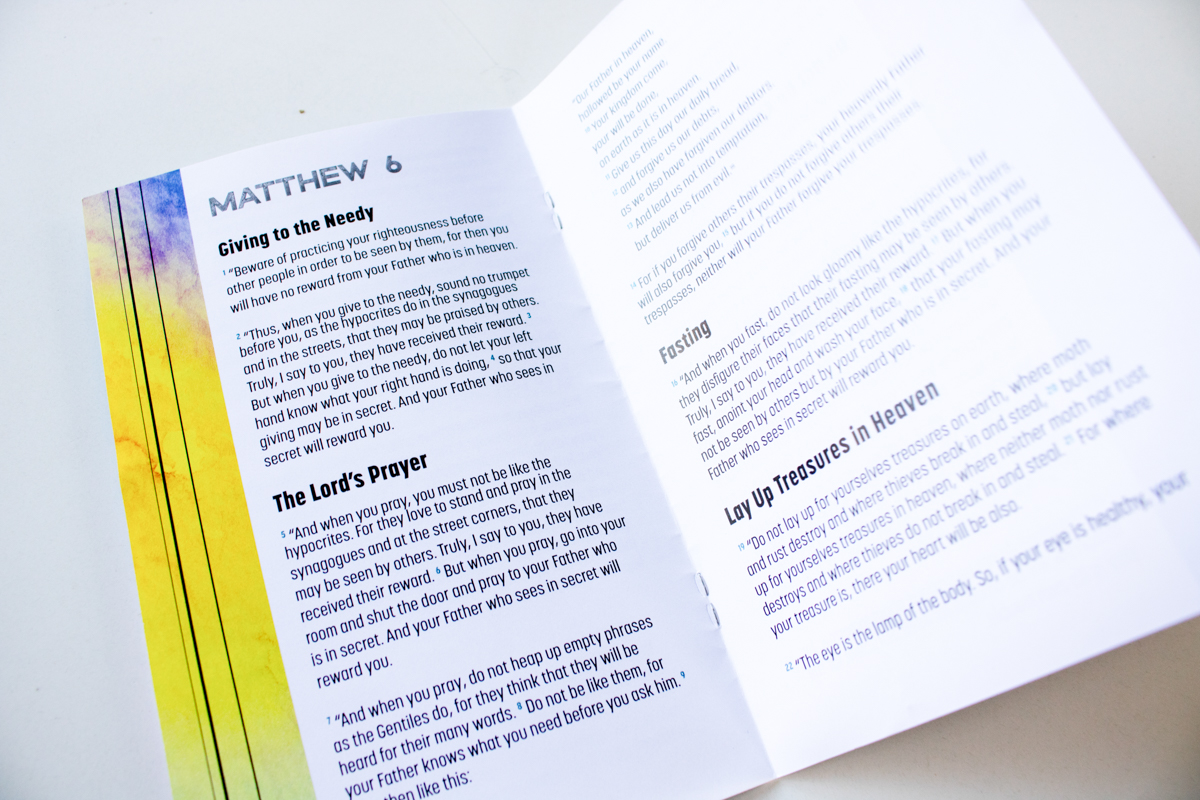 MATTHEW 6
Giving to the Needy
1 “Beware of practicing your righteousness before
other people in order to be seen by them, for then you
will have no reward from your Father who is in heaven.
2 “Thus, when you give to the needy, sound no trumpet
before you, as the hypocrites do in the synagogues
and in the streets, that they may be praised by others.
Truly, I say to you, they have received their reward. 3
But when you give to the needy, do not let your left
hand know what your right hand is doing, 4 so that your
giving may be in secret. And your Father who sees in
secret will reward you.
The Lord’s Prayer
5 “And when you pray, you must not be like the
hypocrites. For they love to stand and pray in the
synagogues and at the street corners, that they
may be seen by others. Truly, I say to you, they have
received their reward. 6 But when you pray, go into your
room and shut the door and pray to your Father who
is in secret. And your Father who sees in secret will
reward you.
7 “And when you pray, do not heap up empty phrases
as the Gentiles do, for they think that they will be
heard for their many words. 8 Do not be like them, for
your Father knows what you need before you ask him. 9
then like this:
“Our Father in heaven,
hallowed be your name.
10 Your kingdom come,
your will be done,
on earth as it is in heaven.
11 Give us this day our daily bread,
12 and forgive us our debts,
as we also have forgiven our debtors.
13 And lead us not into temptation,
but deliver us from evil.”
14 For if you forgive others their trespasses, your heavenly Father
will also forgive you, 15 but if you do not forgive others their
trespasses, neither will your Father forgive your trespasses.
Fasting
16 “And when you fast, do not look gloomy like the hypocrites, for
they disfigure their faces that their fasting may be seen by others.
Truly, I say to you, they have received their reward. 17 But when you
fast, anoint your head and wash your face, 18 that your fasting may
not be seen by others but by your Father who is in secret. And your
Father who sees in secret will reward you.
Lay Up Treasures in Heaven
19 “Do not lay up for yourselves treasures on earth, where moth
and rust destroy and where thieves break in and steal, 20 but lay
up for yourselves treasures in heaven, where neither moth nor rust
destroys and where thieves do not break in and steal. 21 For where
your treasure is, there your heart will be also.
22 “The eye is the lamp of the body. So, if your eye is healthy, your